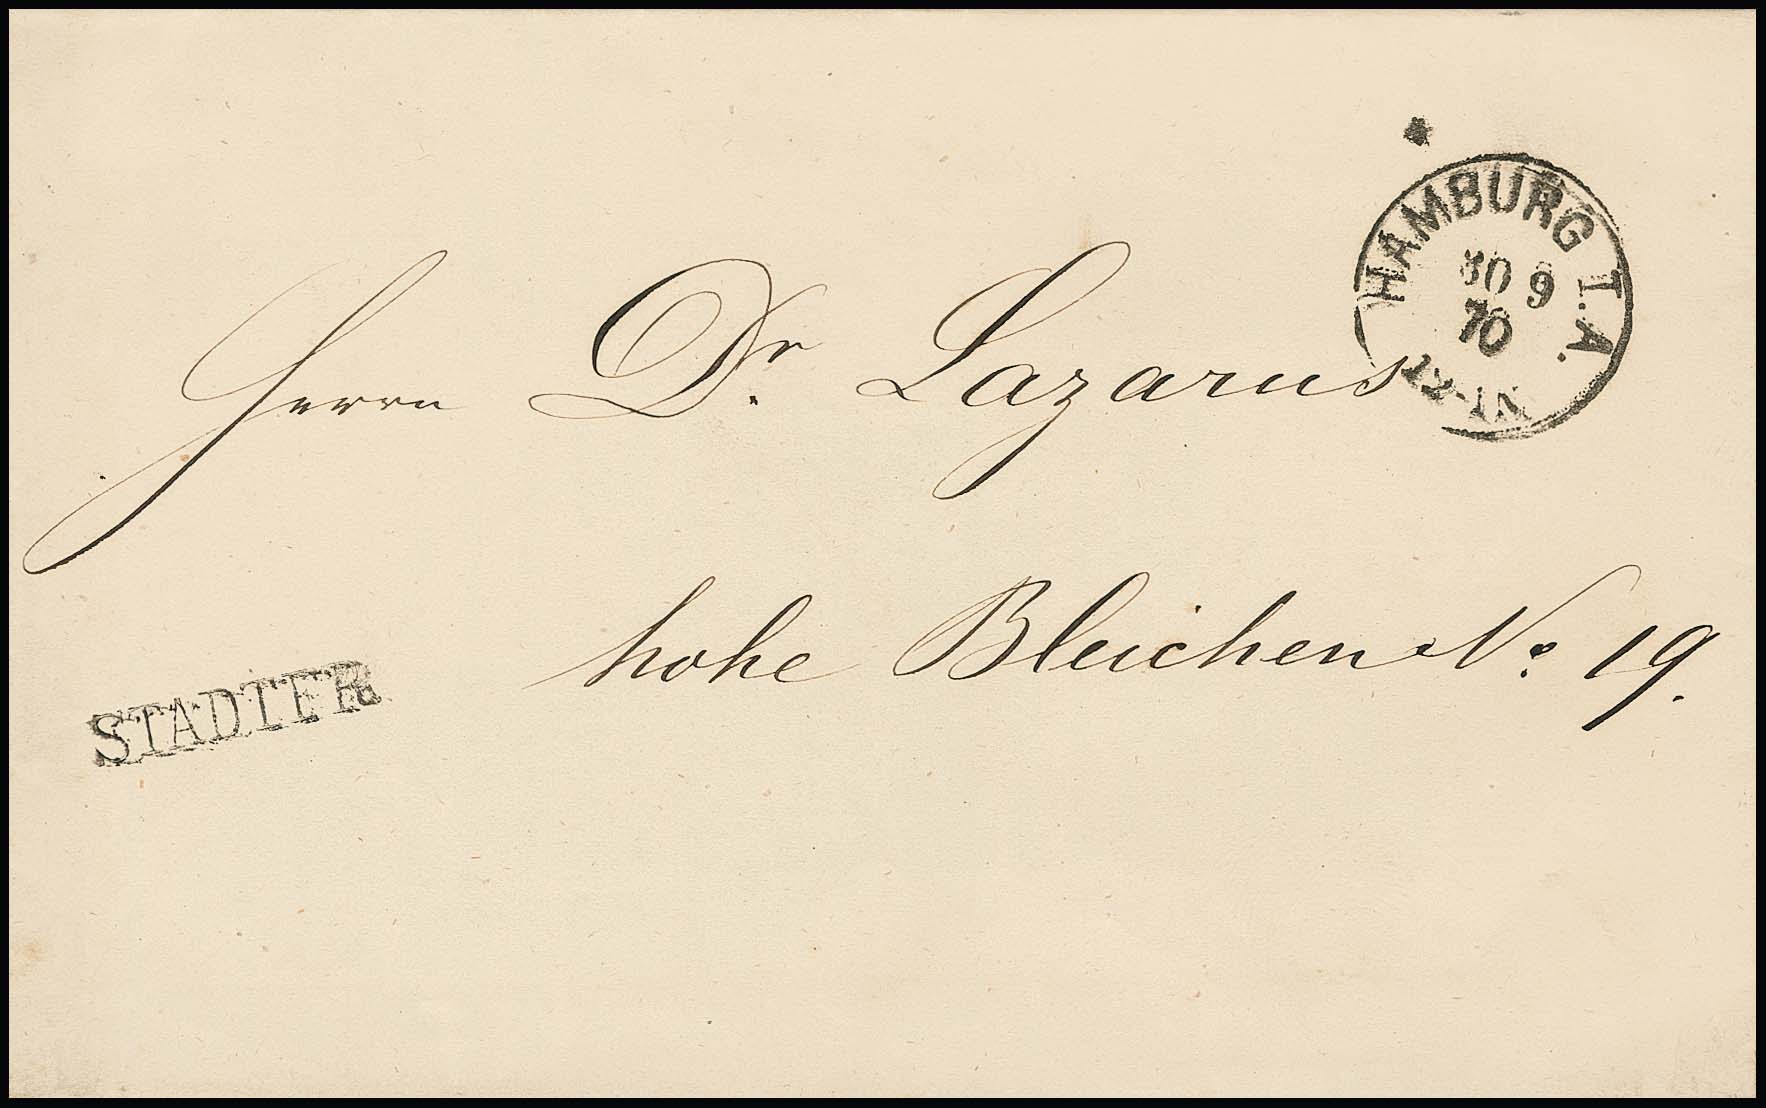 HAMBURG I.A.
30 9
70
12-1N
Herrn Dr. Lazarus
hohe Bleichen No 19.
STADTFR